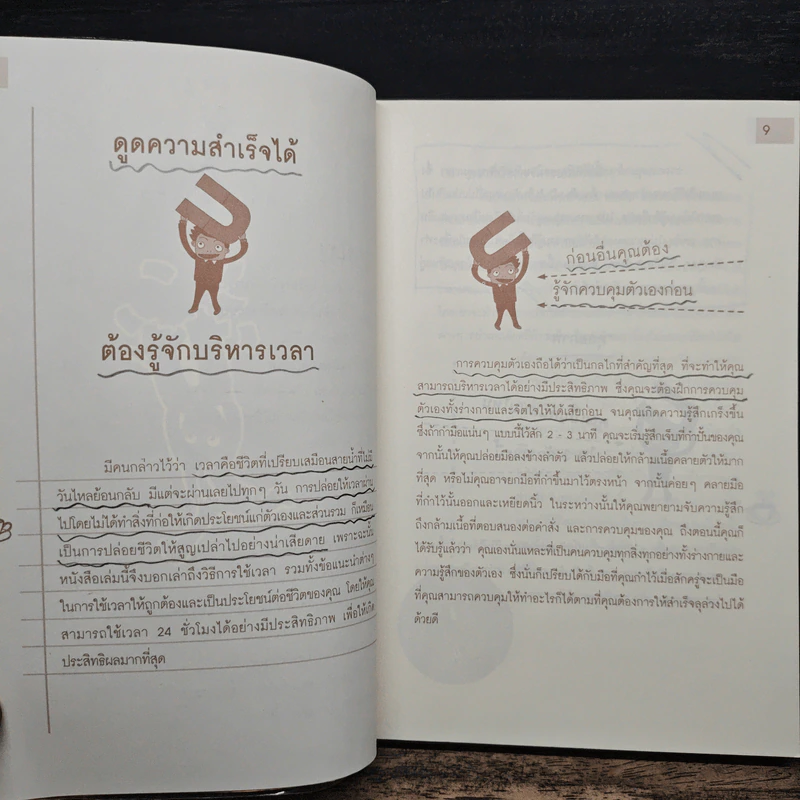 ดูดความสำเร็จได้
ต้องรู้จักบริหารเวลา
มีคนกล่าวไว้ว่า เวลาคือชีวิตที่เปรียบเสมือนสายน้ำที่ไม่มี
วันไหลย้อนกลับ มีแต่จะผ่านเลยไปทุกๆ วัน การปล่อยให้เวลาผ่าน
ไปโดยไม่ได้ทำสิ่งที่ก่อให้เกิดประโยชน์แก่ตัวเองและส่วนรวม ก็เหมือน
เป็นการปล่อยชีวิตให้สูญเปล่าไปอย่างน่าเสียดาย เพราะฉะนั้น
หนังสือเล่มนี้จึงบอกเล่าถึงวิธีการใช้เวลา รวมทั้งข้อแนะนำต่างๆ
ในการใช้เวลาให้ถูกต้องและเป็นประโยชน์ต่อชีวิตของคุณ โดยให้คุณ
สามารถใช้เวลา 24 ชั่วโมงได้อย่างมีประสิทธิภาพ เพื่อให้เกิด
ประสิทธิผลมากที่สุด
9
ก่อนอื่นคุณต้อง
รู้จักควบคุมตัวเองก่อน
การควบคุมตัวเองถือได้ว่าเป็นกลไกที่สำคัญที่สุด ที่จะทำให้คุณ
สามารถบริหารเวลาได้อย่างมีประสิทธิภาพ ซึ่งคุณจะต้องฝึกการควบคุม
ตัวเองทั้งร่างกายและจิตใจให้ได้เสียก่อน จนคุณเกิดความรู้สึกเกร็งขึ้น
ซึ่งถ้ากำมือแน่นๆ แบบนี้ไว้สัก 2 - 3 นาที คุณจะเริ่มรู้สึกเจ็บที่กำปั้นของคุณ
จากนั้นให้คุณปล่อยมือลงข้างลำตัว แล้วปล่อยให้กล้ามเนื้อคลายตัวให้มาก
ที่สุด หรือไม่คุณอาจยกมือที่กำขึ้นมาไว้ตรงหน้า จากนั้นค่อยๆ คลายมือ
ที่กำไว้นั้นออกและเหยียดนิ้ว ในระหว่างนั้นให้คุณพยายามจับความรู้สึก
ถึงกล้ามเนื้อที่ตอบสนองต่อคำสั่ง และการควบคุมของคุณ ถึงตอนนี้คุณก็
ได้รับรู้แล้วว่า คุณเองนั่นแหละที่เป็นคนควบคุมทุกสิ่งทุกอย่างทั้งร่างกายและ
ความรู้สึกของตัวเอง ซึ่งนั่นก็เปรียบได้กับมือที่คุณกำไว้เมื่อสักครู่จะเป็นมือ
ที่คุณสามารถควบคุมให้ทำอะไรก็ได้ตามที่คุณต้องการให้สำเร็จลุล่วงไปได้
ด้วยดี